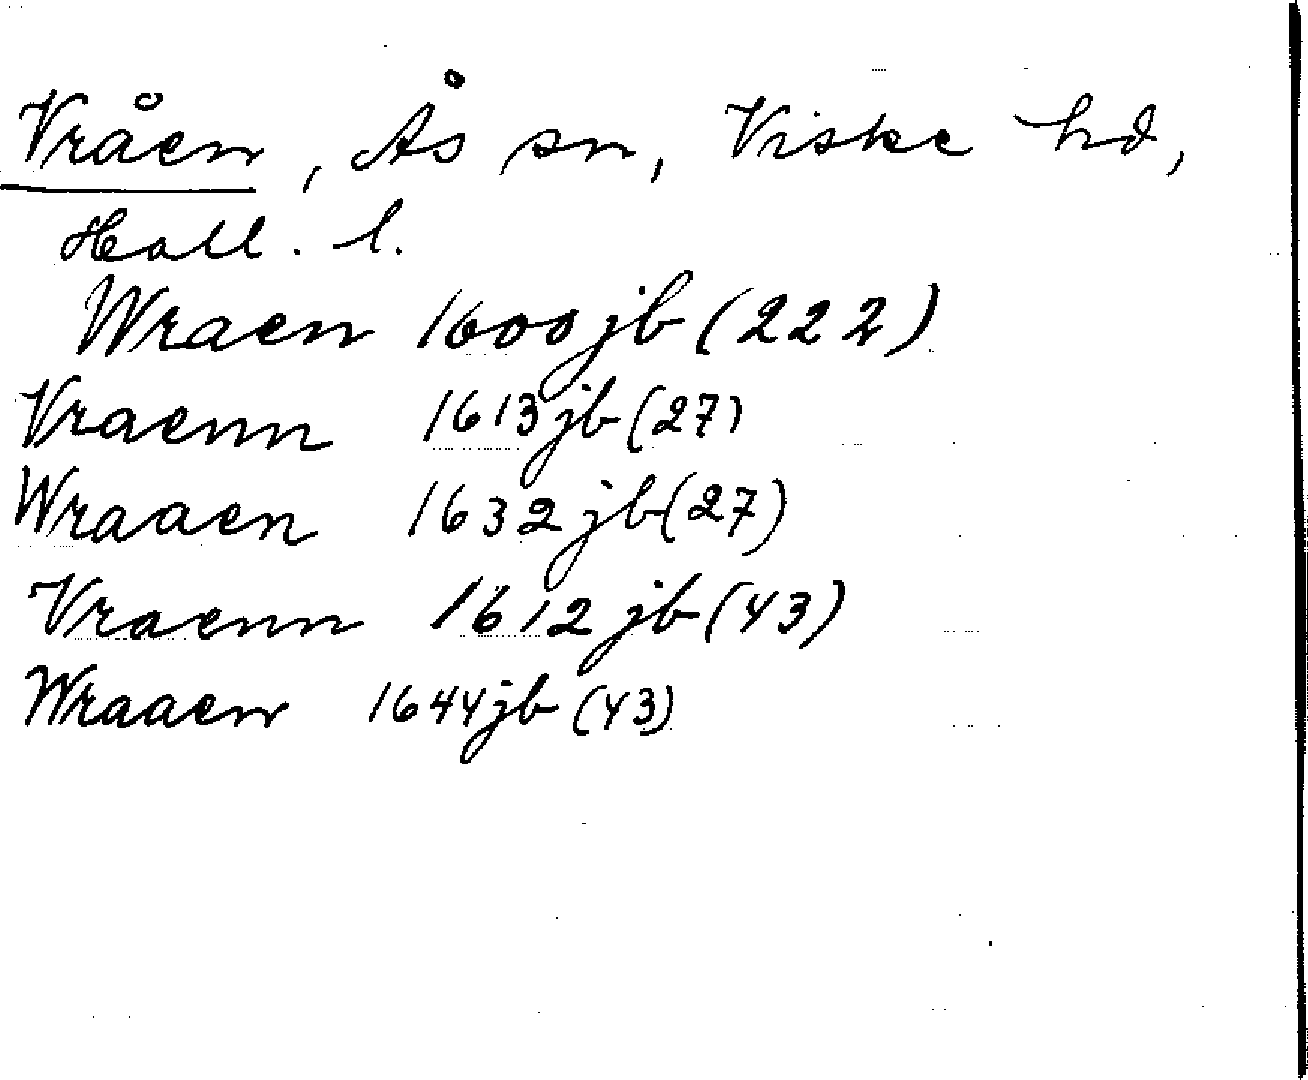 Vråen, Ås sn, Viske hd,
Hall. l.
Wraen 1600 jb (222)
Vraenn 1613 jb (27)
Wraaen 1632 jb (27)
Vraenn 1612 jb (43)
Wraaen 1644 jb (43)